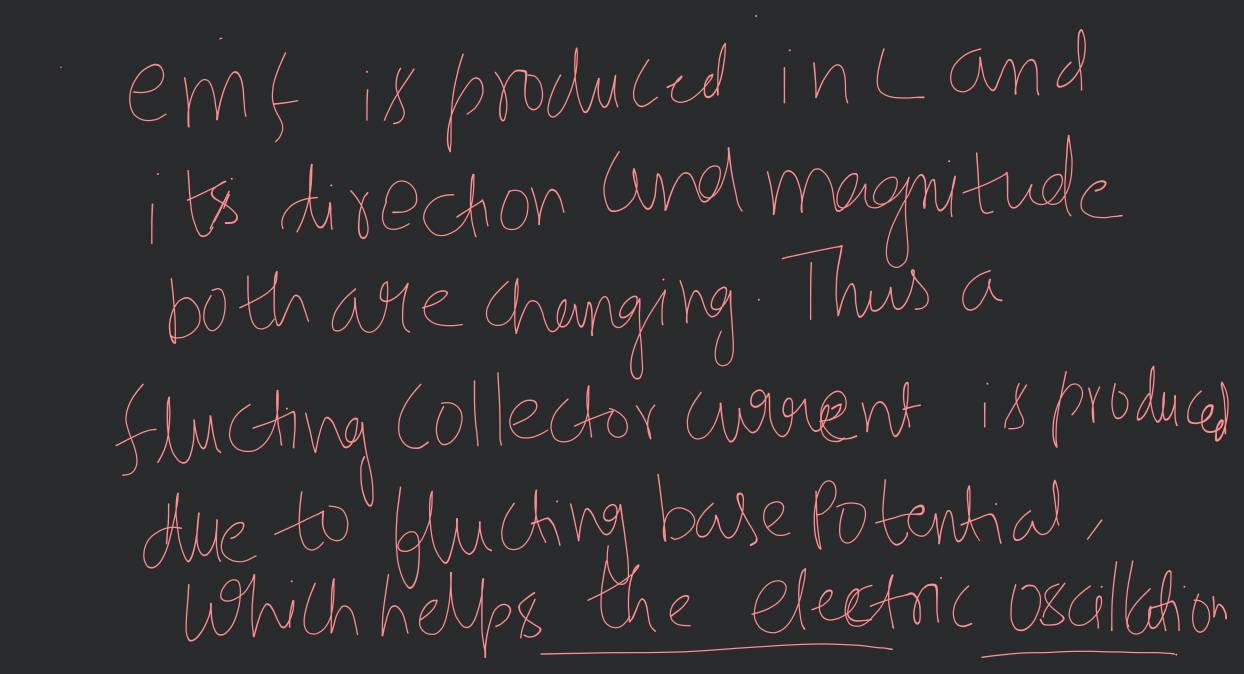 emf is produced in L and
its direction and magnitude
both are changing. Thus a
flucting collector current is produced
due to flucting base Potential,
which helps the electric oscillation